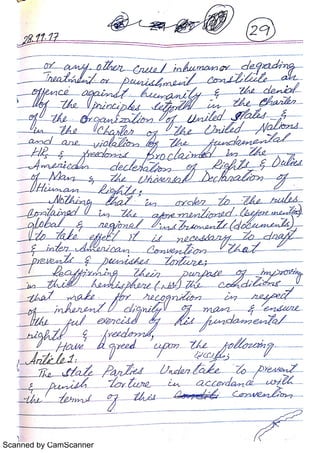 28.11.17
29
or any other cruel inhuman or degrading
Treatment or punishment constitute an
offence against humanity & the denial
of the principles setforth in the Charter
of the Organization of United States &
in the Charter of the United Nations
and are violation of the fundamental
HR & freedoms proclaimed in the
American decleration of Rights & Duties
of Man & the Universal Declaration of
Human Rights;
Nothing that in order to the rules
contained in the aforementioned
global & regional instruments (documents)
to take effect it is necessary to draft
& inter American Convention that
prevents & punishes torture;
Reaffirming their purpose of improving
in this hemisphere the conditions
that make for recognition in respect
of inherent dignity of man & ensure
the full exercise of his fundamental
rights & freedoms,
Have agreed upon the following
Article 1:
The State Parties Undertake to prevent
& punish torture in accordance with
the terms of this convention
Scanned by CamScanner